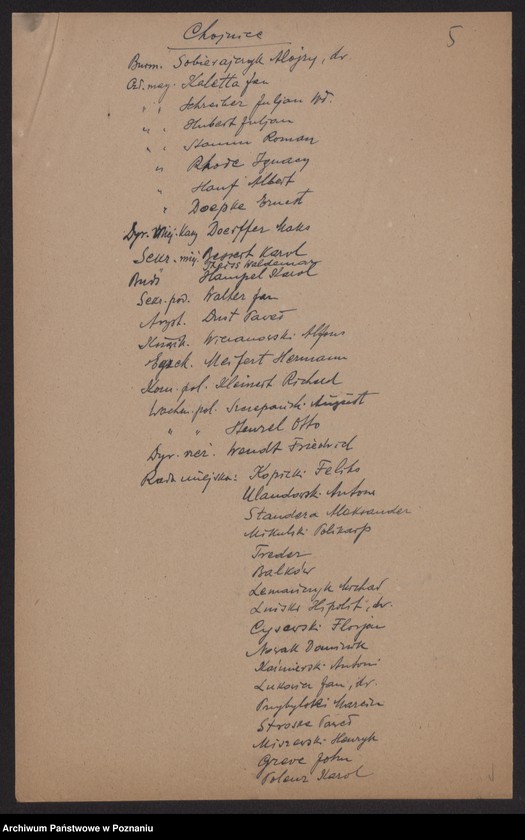 Chojnice
5
Burm. Sobierajczyk Alojzy, dr.
Czł. mag. Kaletta Jan
" " Schreiber Juljan Wł.
" " Hubert Juljan
" " Stamm Roman
" Ignacy
" Hanf Albert
" Doepke Ernest
Dyr. Miej. Kasy Doerffer Maks
Sekr. miej. Bessert Karol
Waldemar
Hampel Karol
Sekr. pod. Walter Jan
Asyst. Dust Paweł
Wieranowski Alfons
Egzek. Meifert Hermann
Kom. pol. Kleinert Richard
Wachm. pol. Szczepański August
" " Henzel Otto
Dyr. rzeź. Wendt Friedrich
Rada miejska: Kopicki Feliks
Ulandowski Antoni
Standera Aleksander
Mikulski Polikarp
Treder
Balków
Lemańczyk Michał
Łniski Hipolit, dr.
Cysewski Florjan
Nowak Dominik
Kaźmierski Antoni
Łukowicz Jan, dr.
Przybylski Marcin
Stroske Paweł
Miszewski Henryk
Greve John
Polenz Karol
Archiwum Państwowe w Poznaniu